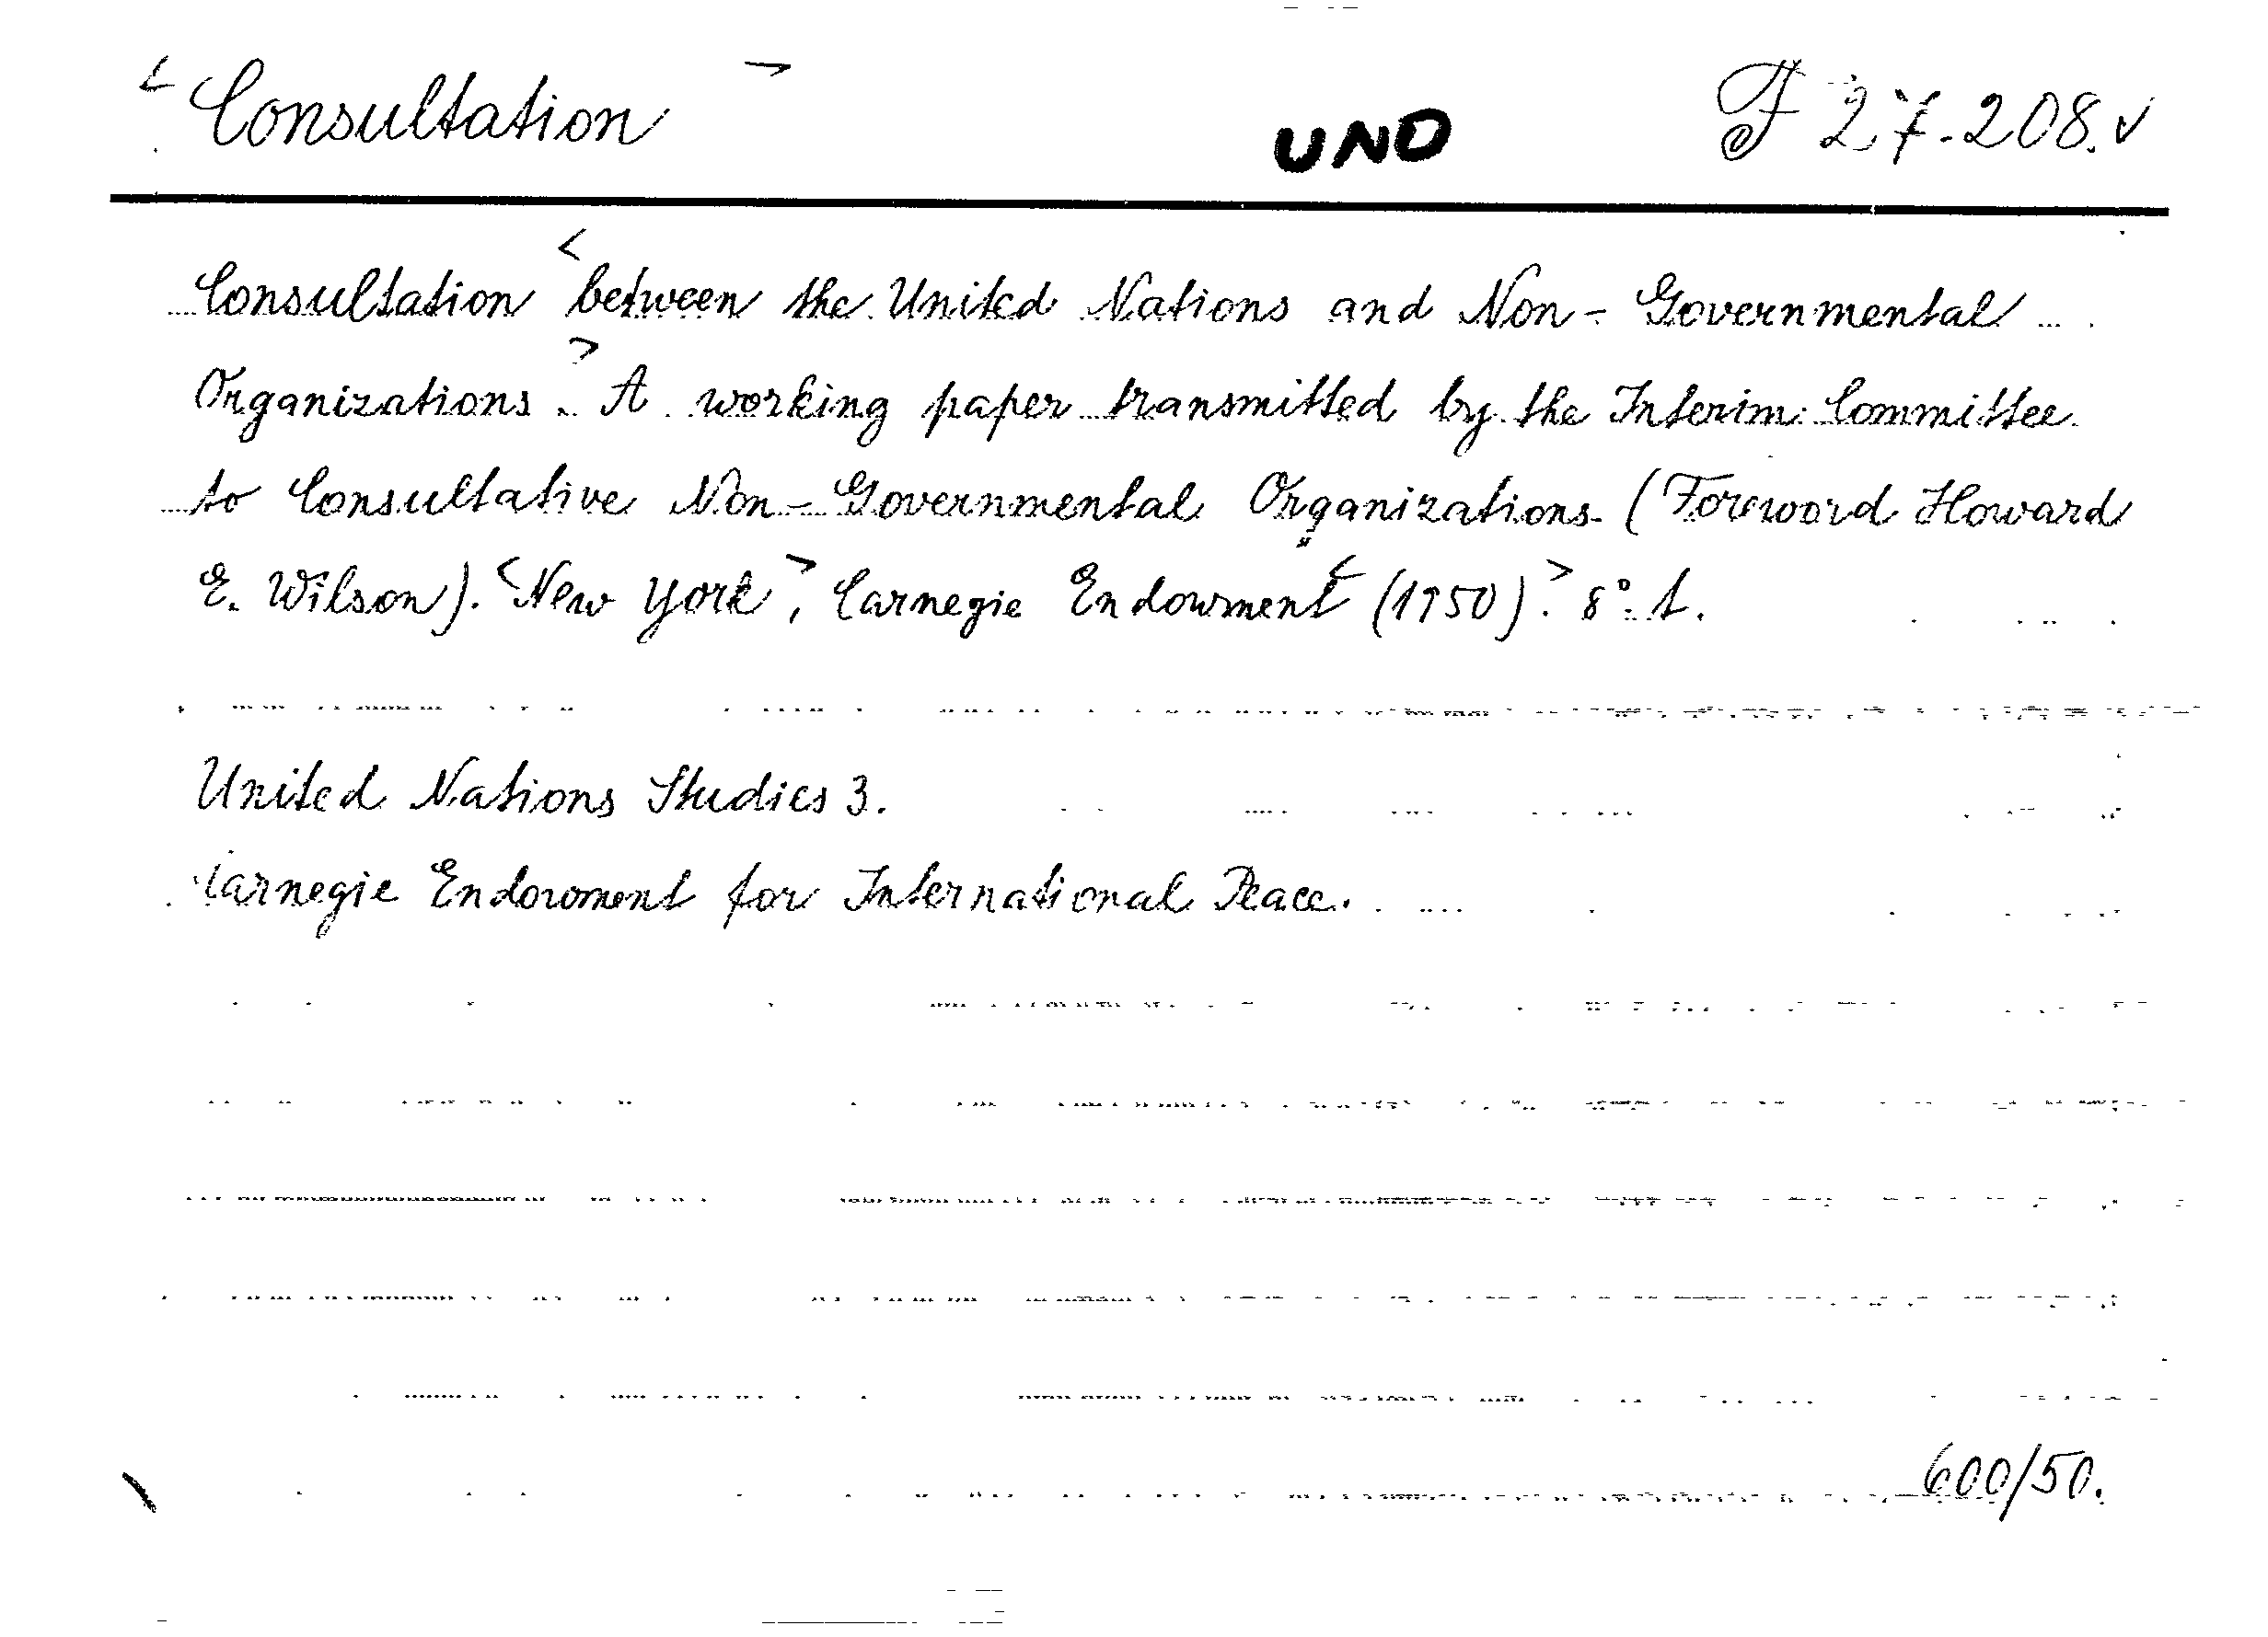 <Consultation>
UNO
F 27.208.v
Consultation <between the United Nations and Non-Governmental
Organizations>. A working paper transmitted by the Interim Committee
to Consultative Non-Governmental Organizations. (Foreword Howard
E. Wilson). <New York>, Carnegie Endowment <(1950).> 8°. 1.
United Nations Studies 3.
Carnegie Endowment for International Peace.
600/50.